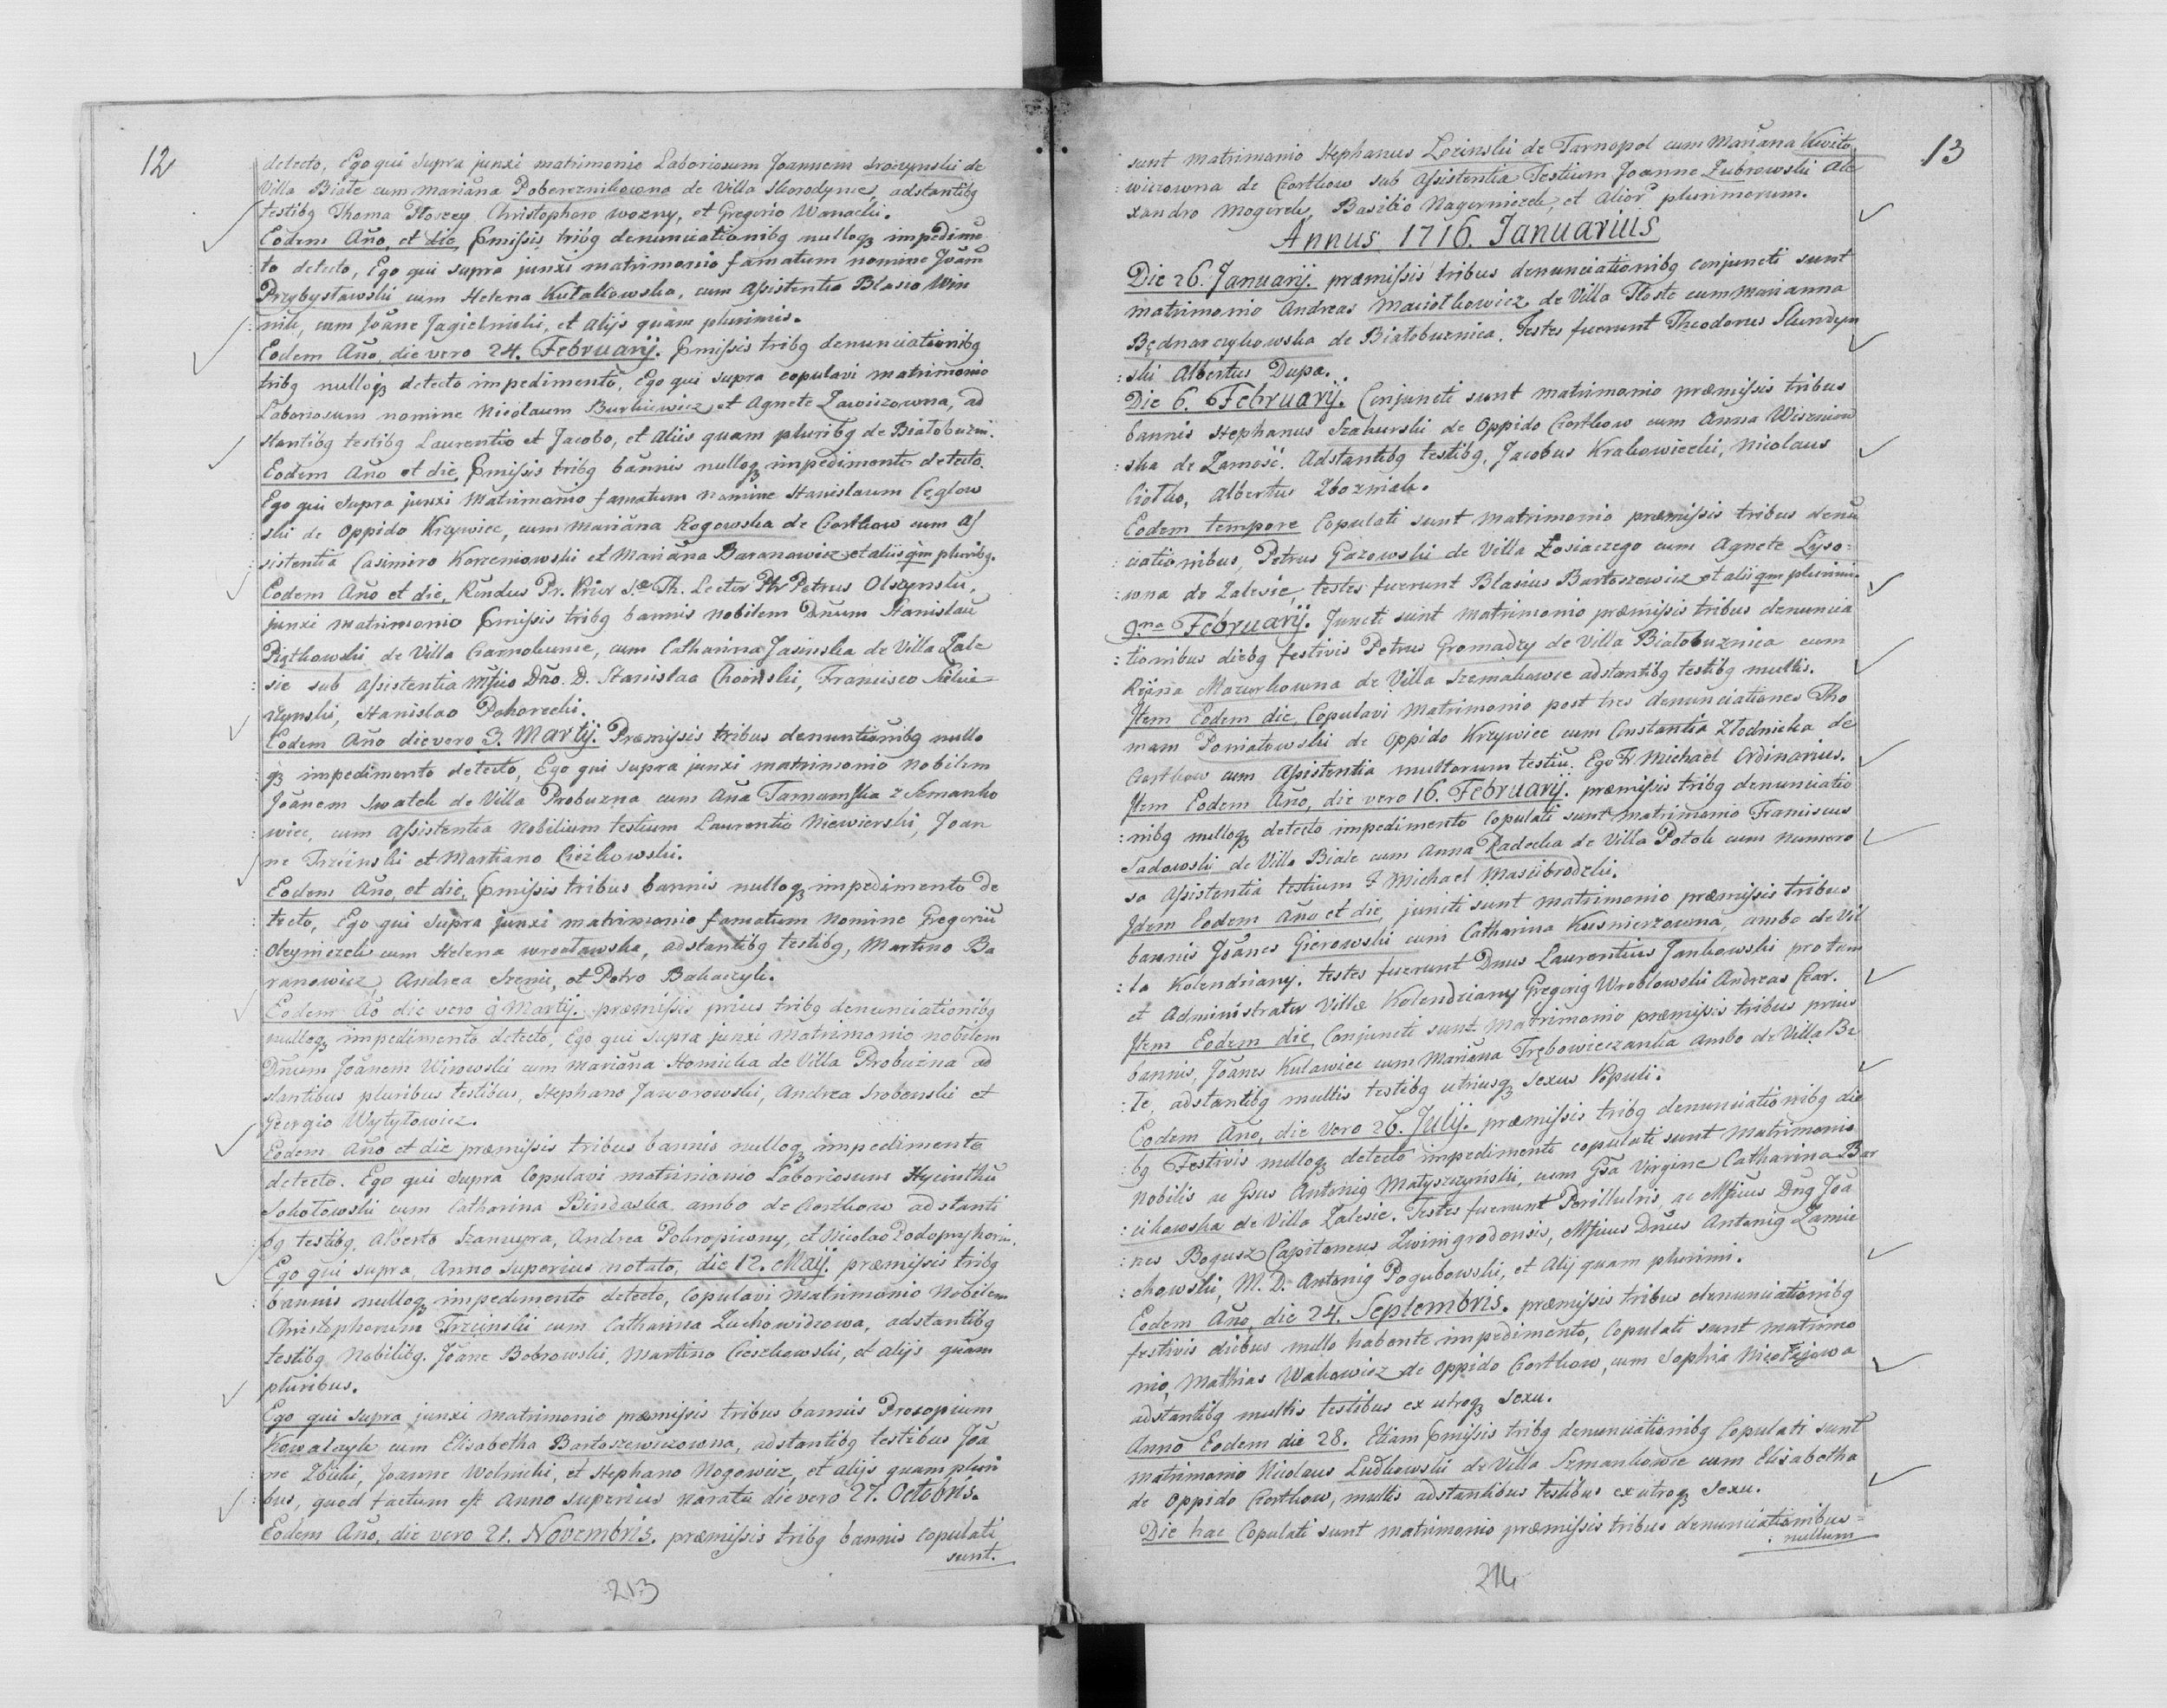 12
detecto, Ego qui supra junxi matrimonio Laboriosum Joannem Sroczynski de
Villa Biale cum Mariana Pobereznikowna de Villa Skorodynce, adstantibq
testibq Thoma Tkoczey Christophoro Wozny, et Gregorio Wanachi.
Eodem Año, et die, pmissis tribq denunciationibq nulloqz impedime
to detecto, Ego qui supra junxi matrimonio famatum nomine Joañ
Przybystawski cum Helena Kutakowska, cum Assistentia Blasio Win
nik, cum Joãne Jagielnicki, et alijs quam plurimis.
Eodem Año, die vero 24. Februarij. pmissis tribq denunciationibq
tribq nulloqz detecto impedimento, Ego qui supra copulavi matrimonio
Laboriosum nomine Nicolaum Burkiewicz, et Agnete Zawiszowna, ad
stantibq testibq Laurentio et Jacobo, et aliis quam pluribq de Biatobuzni.
Eodem Año et die, pmissis tribq bannis nulloqz impedimento detecto.
Ego qui supra junxi Matrimonio famatum nomine Stanislaum Ceglow
ski de Oppido Krzywice, cum Mariãna Rogowska de Czortkow cum As
sistentia Casimiro Korzeniowski et Mariãna Baranowicz et aliis qm pluribq.
Eodem Año et die, Rñndus Pr. Prior S. Th. Lector Petrus Olszynski,
junxi matrimonio pmissis tribq bannis Nobilem Dnum Stanislaũ
Piątkowski de Villa Czarnokunce, cum Catharina Jasinska de Villa Zale
sie sub Assistentia Mfico Dño. D. Stanislao Choinski, Francisco
Stanislao Pokorecki.
Eodem Año die vero 3. Martij. Præmissis tribus denuntionibq nullo
qz impedimento detecto, Ego qui supra junxi matrimonio Nobilem
Joãnem Swatek de Villa Probuzna cum Aña z Semanko
wiec, cum Assistentia Nobilium testium Laurentio Niewierski, Joan
ne Trzcinski et Martiano Cieżkowski.
Eodem Año, et die, pmissis tribus bannis nulloqz impedimento de
tecto, Ego qui supra junxi matrimonio famatum nomine Gregoriũ
Oleyniczek cum Helena Wroctawska, adstantibq testibq, Martino Ba
ranowicz, Andrea Szenic, et Petro Bakaczyk.
Eodem Ão die vero 9 Martij. præmissis prius tribq denunciationibq
nulloqz impedimento detecto, Ego qui supra junxi Matrimonio nobilem
Dnum Joãnem Wirowski cum Mariãna Homicka de Villa Probuzna ad
stantibus pluribus testibus, Stephano Jaworowski, Andrea Srobonski et
Georgio Wytytowicz.
Eodem Año et die præmissis tribus bannis nulloqz impedimento
detecto. Ego qui supra Copulavi matrimonio Laboriosum Hycinthũ
Sokotowski cum Catharina Bindaska ambo de Czortkow adstanti
bq testibq, Alberto Szanupra, Andrea Pokropiwny, et Nicolao Podopryhorin.
Ego qui supra, Anno superius notato, die 12. Maij. præmissis tribq
bannis nulloqz impedimento detecto, Copulavi Matrimonio Nobilem
Christophorum Trzcinski cum Catharina Zuchowidzowa, adstantibq
testibq Nobilibq. Joãne Bobrowski, Martino Cieszkowski, et alijs quam
pluribus.
Ego qui supra junxi matrimonio præmissis tribus bannis Procopium
Kowalczyk cum Elisabetha Bartoszewiczowna, adstantibq testibus Joa
ne Zbicki, Joanne Wolnicki, et Stephano Nogowicz, et alijs quam pluri
bus, quod factum est Anno superius narato die vero 27. Octobris.
Eodem Año, die vero 21. Novembris. præmissis tribq bannis copulati
sunt.
213
13
sunt matrimonio Stephanus Lozinski de Tarnopol cum Mariana Kwito
wiczowna de Czortkow sub Assistentia Testium Joanne Zubrowski Ale
xandro Mogirek, Basilio Nagerniczek, et Alior plurimorum.
Annus 1716. Januarius
Die 26. Januarij. præmissis tribus denunciationibq conjuncti sunt
matrimonio Andreas Maciotkowicz de Villa Tloste cum Marianna
Bednarczykowska de Biatobuznica. Testes fuerunt Theodorus Skundyn
ski Albertus Dupa.
Die 6. Februarij. Conjuncti sunt matrimonio præmissis tribus
bannis Stephanus Szakurski de Oppido Czortkow cum Anna Wiszniow
ska de Zamość. Adstantibq testibq, Jacobus Krakowiecki, Nicolaus
Ciotko, Albertus Zbozniak.
Eodem tempore Copulati sunt matrimonio præmissis tribus denũ
ciationibus, Petrus Gazowski de Villa Łosiaczego cum Agnete Lyso
wna de Zalesie, testes fuerunt Blasius Bartoszewicz et alii qm plurimi.
9.na Februarij. Juncti sunt matrimonio præmissis tribus denuncia
tionibus diebq festivis Petrus Gromadzy de Villa Biatobuznica cum
Rijna Mazurkowna de Villa Szmakowce adstantibq testibq multis.
Item Eodem die, Copulavi Matrimonio post tres denunciationes Tho
mam Poniatowski de Oppido Krzywice cum Constantia Ztodnicka de
Czortkow cum Assistentia multorum testiũ. Ego Fr Michael Ordinarius.
Item Eodem Año, die vero 16. Februarij. præmissis tribq denunciatio
nibq nulloqz detecto impedimento Copulati sunt matrimonio Franciscus
Sadowski de Villa Biale cum Anna Radecka de Villa Potok cum numero
so Assistentia testium F Michael Mascibrodzki.
Idem Eodem Año et die, juncti sunt matrimonio præmissis tribus
bannis Joãnes Gierowski cum Catharina Kusnierzowna, ambo de Vil
la Kolendziany, testes fuerunt Dnus Laurentius Jankowski pro tum
et Administrator Villæ Kolendziany Gregoriq Wroblowski Andreas Czar.
Item Eodem die, Conjuncti sunt Matrimonio præmissis tribus prius
bannis, Joãnes Kulawiec cum Mariãna Trębowieczanka ambo de Villa Be
Te, adstantibq multis testibq utriusqz sexus Populi.
Eodem Año, die vero 26. Julij. præmissis tribq denunciationibq die
bq Festivis nulloqz detecto impedimento copulati sunt Matrimonio
Nobilis ac Gsus Antoniq Matyszczynski, cum Gsa Virgine Catharina Bar
cikowska de Villa Zalesie. Testes fuerunt Perillustris, ac Mficus Dnq Joa
nes Bogusz Capitaneus Zwinigrodensis, Mficus Dnus Antoniq Zamie
chowski, M. D. Antoniq Pogubowski, et Alij quam plurimi.
Eodem Año, die 24. Septembris. præmissis tribus denunciationibq
festivis diebus nullo habente impedimento, Copulati sunt matrimo
nio, Mathias Wakowicz de Oppido Czortkow, cum Sophia Nicotajowa
adstantibq multis testibus ex utroqz sexu.
Anno Eodem die 28. Etiam pmissis tribq denunciationibq Copulati sunt
matrimonio Nicolaus Ludkowski de Villa Szmankowce cum Elisabetha
de Oppido Czortkow, multis adstantibus testibus ex utroqz sexu.
Die hac Copulati sunt matrimonio præmissis tribus denunciationibus
nullum
214